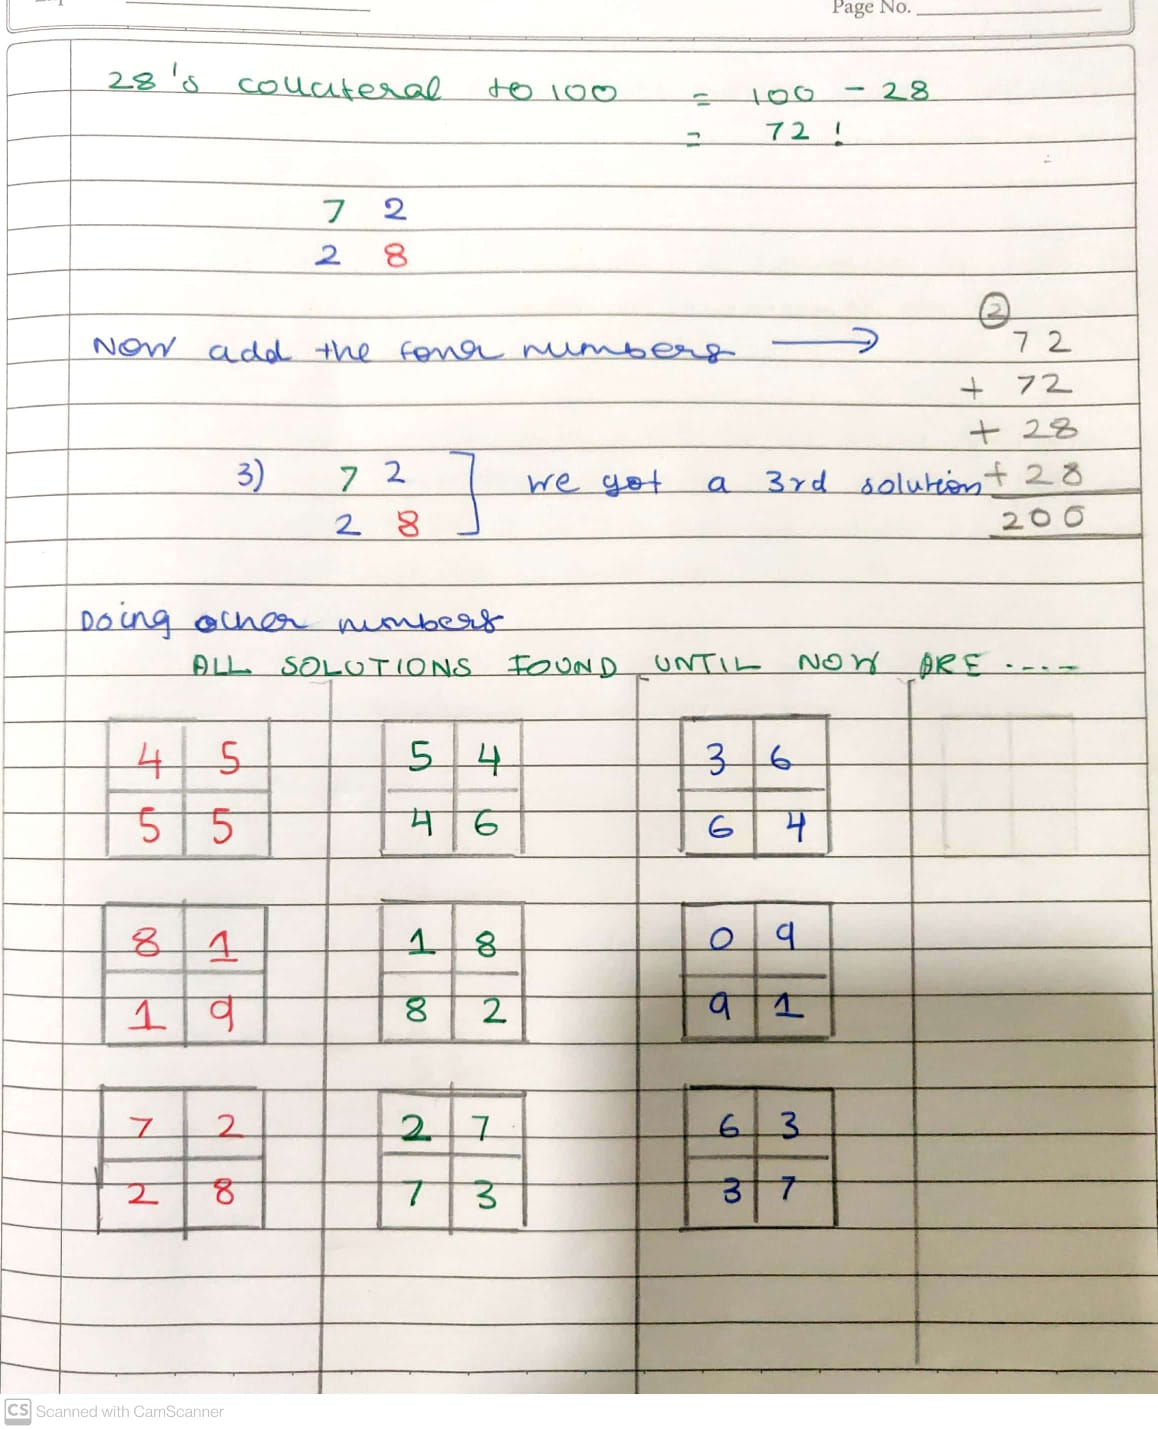 Page No.
28's collateral to 100 = 100 - 28
= 72 !
7 2
2 8
②
Now add the four numbers → 72
+ 72
+ 28
3) 7 2 ] we got a 3rd solution + 28
2 8
200
Doing other numbers
ALL SOLUTIONS FOUND UNTIL NOW ARE ----
4 5 5 4 3 6
5 5 4 6 6 4
8 1 1 8 0 9
1 9 8 2 9 1
7 2 2 7 6 3
2 8 7 3 3 7
CS Scanned with CamScanner